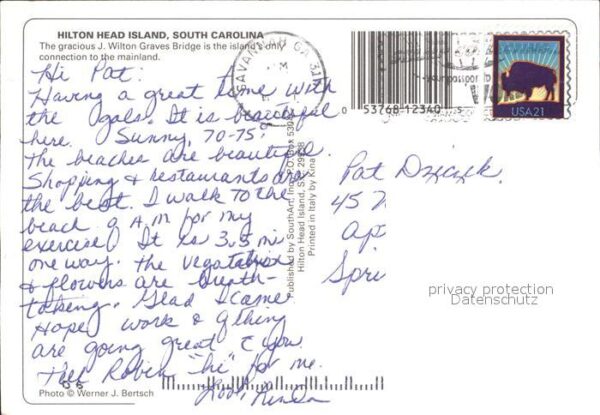 HILTON HEAD ISLAND, SOUTH CAROLINA
The gracious J. Wilton Graves Bridge is the island's only
connection to the mainland.
Hi Pat:
Having a great time with
the Ogals. It is beautiful
here. Sunny, 70-75°.
The beaches are beautiful.
Shopping & restaurants are
the best. I walk to the
beach 9 A.M for my
exercise! It is 3.5 mi
one way. The vegatation
& flowers are breath-
taking. Glad I came
Hope work & everything
are going great c you.
Tell Robin "hi" for me.
Love, Linda
Photo © Werner J. Bertsch
Published by SouthArt, Inc., P.O. Box
Hilton Head Island, SC
Printed in Italy by Kina
SAVANNAH GA 314
0 53768-12340 5
USA 21
Pat
45
Ap
Spri
privacy protection
Datenschutz